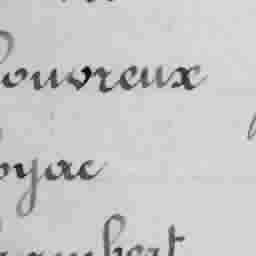 ouvreux
oyac
ambert